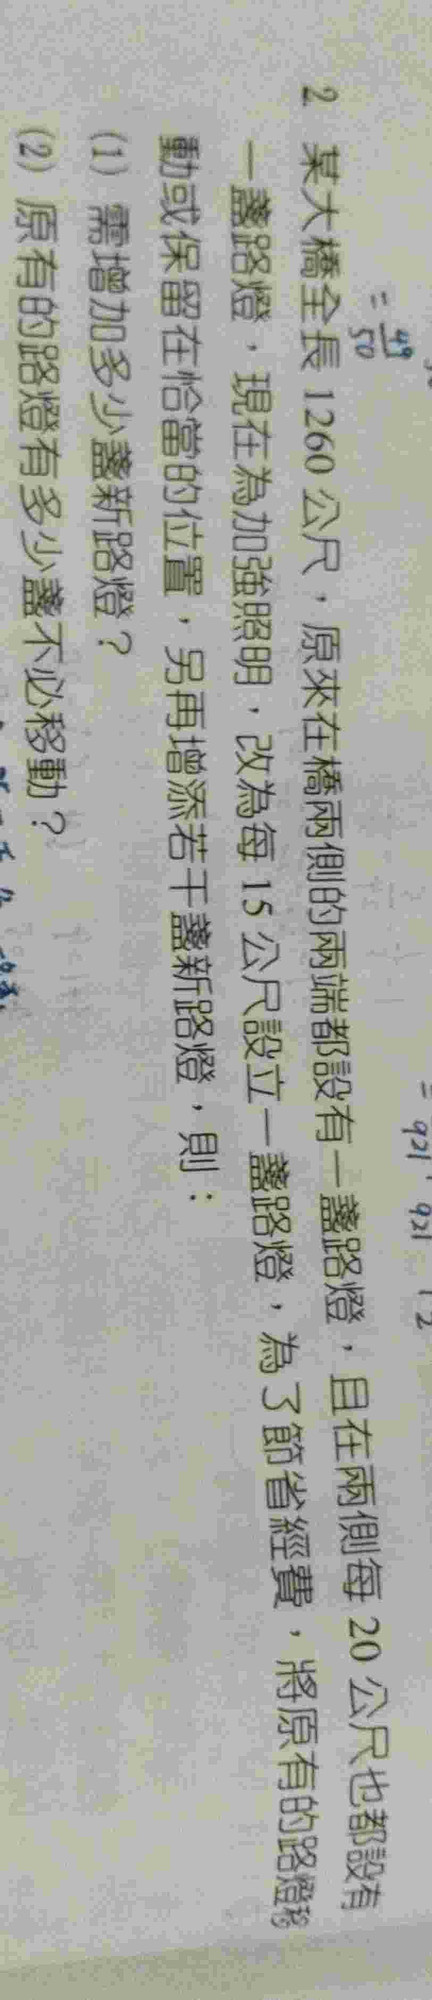 = 49/50
= 921 , 921 12
2. 某大橋全長 1260 公尺，原來在橋兩側的兩端都設有一盞路燈，且在兩側每 20 公尺也都設有
一盞路燈，現在為加強照明，改為每 15 公尺設立一盞路燈，為了節省經費，將原有的路燈移
動或保留在恰當的位置，另再增添若干盞新路燈，則：
(1) 需增加多少盞新路燈？
(2) 原有的路燈有多少盞不必移動？